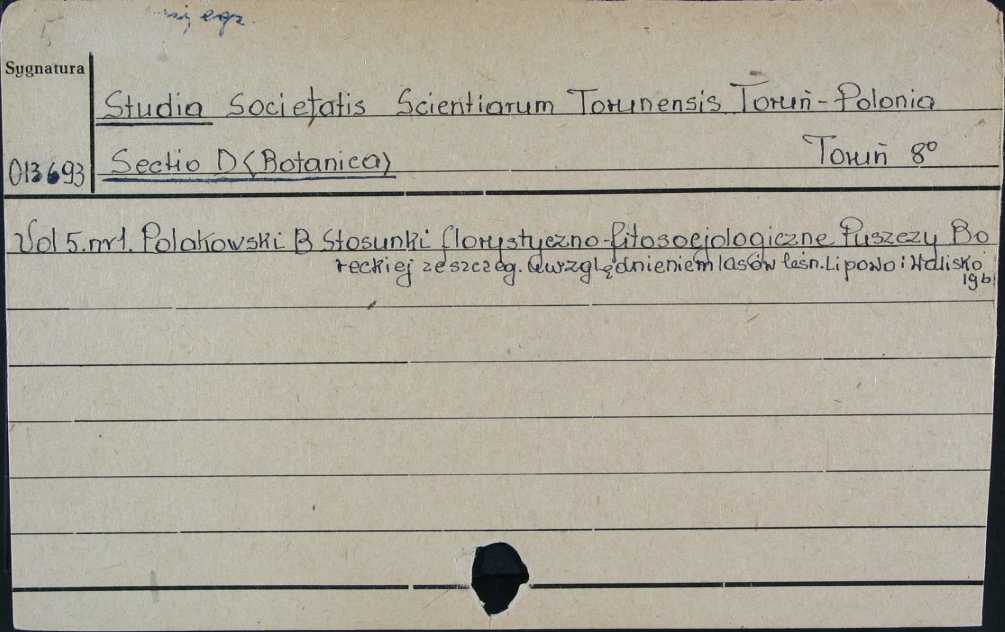 egz.
Sygnatura
Studia Societatis Scientiarum Torunensis Toruń-Polonia
013693 Sectio D (Botanica) Toruń 8°
Vol 5. nr 1. Polakowski B Stosunki florystyczno-fitosocjologiczne Puszczy Bo
reckiej ze szczeg. uwzględnieniem lasów leśn. Lipowo i Walisko